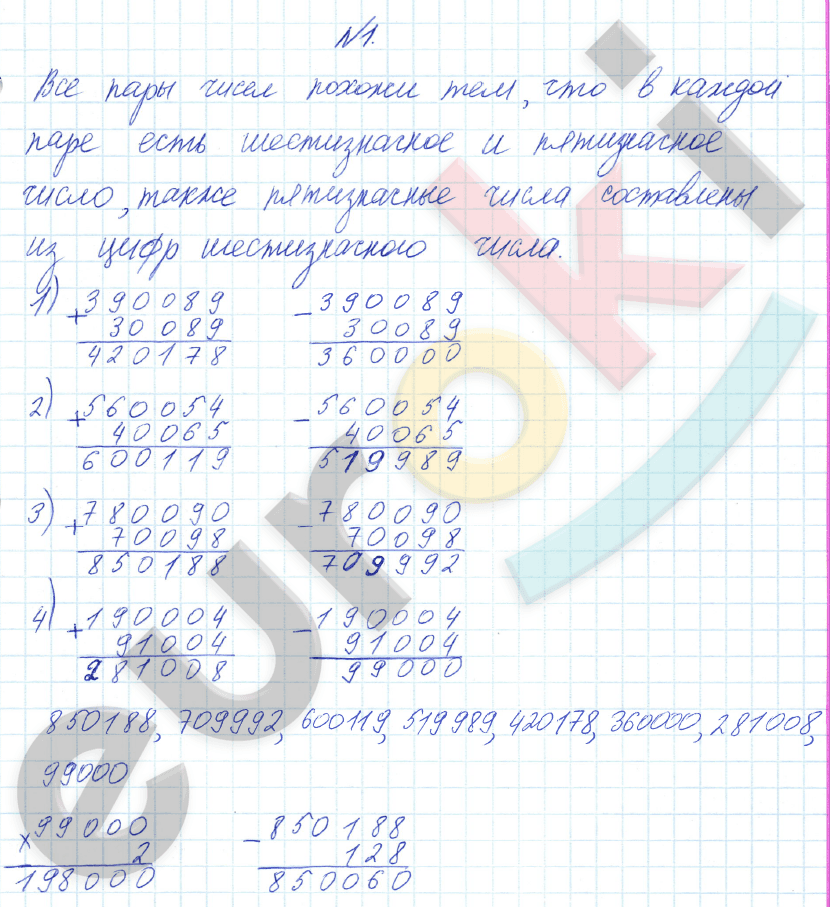 №1.
Все пары чисел похожи тем, что в каждой
паре есть шестизначное и пятизначное
число, также пятизначные числа составлены
из цифр шестизначного числа.
1) +390089 −390089
30089 30089
420178 360000
2) +560054 −560054
40065 40065
600119 519989
3) +780090 −780090
70098 70098
850188 709992
4) +190004 −190004
91004 91004
281008 99000
850188, 709992, 600119, 519989, 420178, 360000, 281008,
99000
×99000 −850188
2 128
198000 850060
euroki